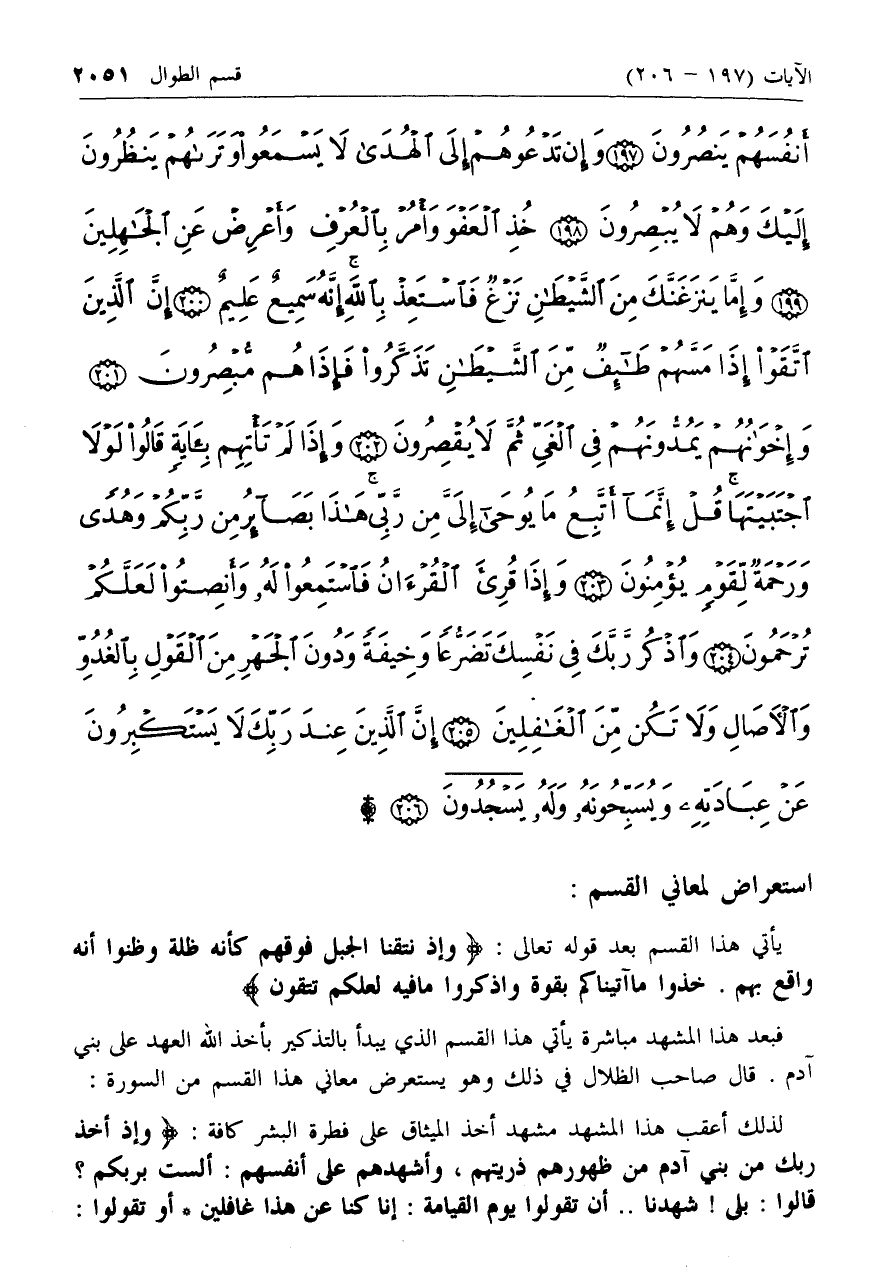 الآيات (١٩٧ – ٢٠٦) قسم الطوال ٢٠٥١
أَنفُسَهُمْ يَنصُرُونَ ﴿١٩٧﴾ وَإِن تَدْعُوهُمْ إِلَى ٱلْهُدَىٰ لَا يَسْمَعُوا۟ وَتَرَىٰهُمْ يَنظُرُونَ
إِلَيْكَ وَهُمْ لَا يُبْصِرُونَ ﴿١٩٨﴾ خُذِ ٱلْعَفْوَ وَأْمُرْ بِٱلْعُرْفِ وَأَعْرِضْ عَنِ ٱلْجَٰهِلِينَ
﴿١٩٩﴾ وَإِمَّا يَنزَغَنَّكَ مِنَ ٱلشَّيْطَٰنِ نَزْغٌ فَٱسْتَعِذْ بِٱللَّهِ ۚ إِنَّهُۥ سَمِيعٌ عَلِيمٌ ﴿٢٠٠﴾ إِنَّ ٱلَّذِينَ
ٱتَّقَوْا۟ إِذَا مَسَّهُمْ طَٰٓئِفٌ مِّنَ ٱلشَّيْطَٰنِ تَذَكَّرُوا۟ فَإِذَا هُم مُّبْصِرُونَ ﴿٢٠١﴾
وَإِخْوَٰنُهُمْ يَمُدُّونَهُمْ فِى ٱلْغَىِّ ثُمَّ لَا يُقْصِرُونَ ﴿٢٠٢﴾ وَإِذَا لَمْ تَأْتِهِم بِـَٔايَةٍ قَالُوا۟ لَوْلَا
ٱجْتَبَيْتَهَا ۚ قُلْ إِنَّمَآ أَتَّبِعُ مَا يُوحَىٰٓ إِلَىَّ مِن رَّبِّى ۚ هَٰذَا بَصَآئِرُ مِن رَّبِّكُمْ وَهُدًى
وَرَحْمَةٌ لِّقَوْمٍ يُؤْمِنُونَ ﴿٢٠٣﴾ وَإِذَا قُرِئَ ٱلْقُرْءَانُ فَٱسْتَمِعُوا۟ لَهُۥ وَأَنصِتُوا۟ لَعَلَّكُمْ
تُرْحَمُونَ ﴿٢٠٤﴾ وَٱذْكُر رَّبَّكَ فِى نَفْسِكَ تَضَرُّعًا وَخِيفَةً وَدُونَ ٱلْجَهْرِ مِنَ ٱلْقَوْلِ بِٱلْغُدُوِّ
وَٱلْءَاصَالِ وَلَا تَكُن مِّنَ ٱلْغَٰفِلِينَ ﴿٢٠٥﴾ إِنَّ ٱلَّذِينَ عِندَ رَبِّكَ لَا يَسْتَكْبِرُونَ
عَنْ عِبَادَتِهِۦ وَيُسَبِّحُونَهُۥ وَلَهُۥ يَسْجُدُونَ ﴿٢٠٦﴾ ۩
استعراض لمعاني القسم :
يأتي هذا القسم بعد قوله تعالى : ﴿ وإذ نتقنا الجبل فوقهم كأنه ظلة وظنوا أنه
واقع بهم . خذوا ماآتيناكم بقوة واذكروا مافيه لعلكم تتقون ﴾
فبعد هذا المشهد مباشرة يأتي هذا القسم الذي يبدأ بالتذكير بأخذ الله العهد على بني
آدم . قال صاحب الظلال في ذلك وهو يستعرض معاني هذا القسم من السورة :
لذلك أعقب هذا المشهد مشهد أخذ الميثاق على فطرة البشر كافة : ﴿ وإذ أخذ
ربك من بني آدم من ظهورهم ذريتهم ، وأشهدهم على أنفسهم : ألست بربكم ؟
قالوا : بلى ! شهدنا .. أن تقولوا يوم القيامة : إنا كنا عن هذا غافلين * أو تقولوا :